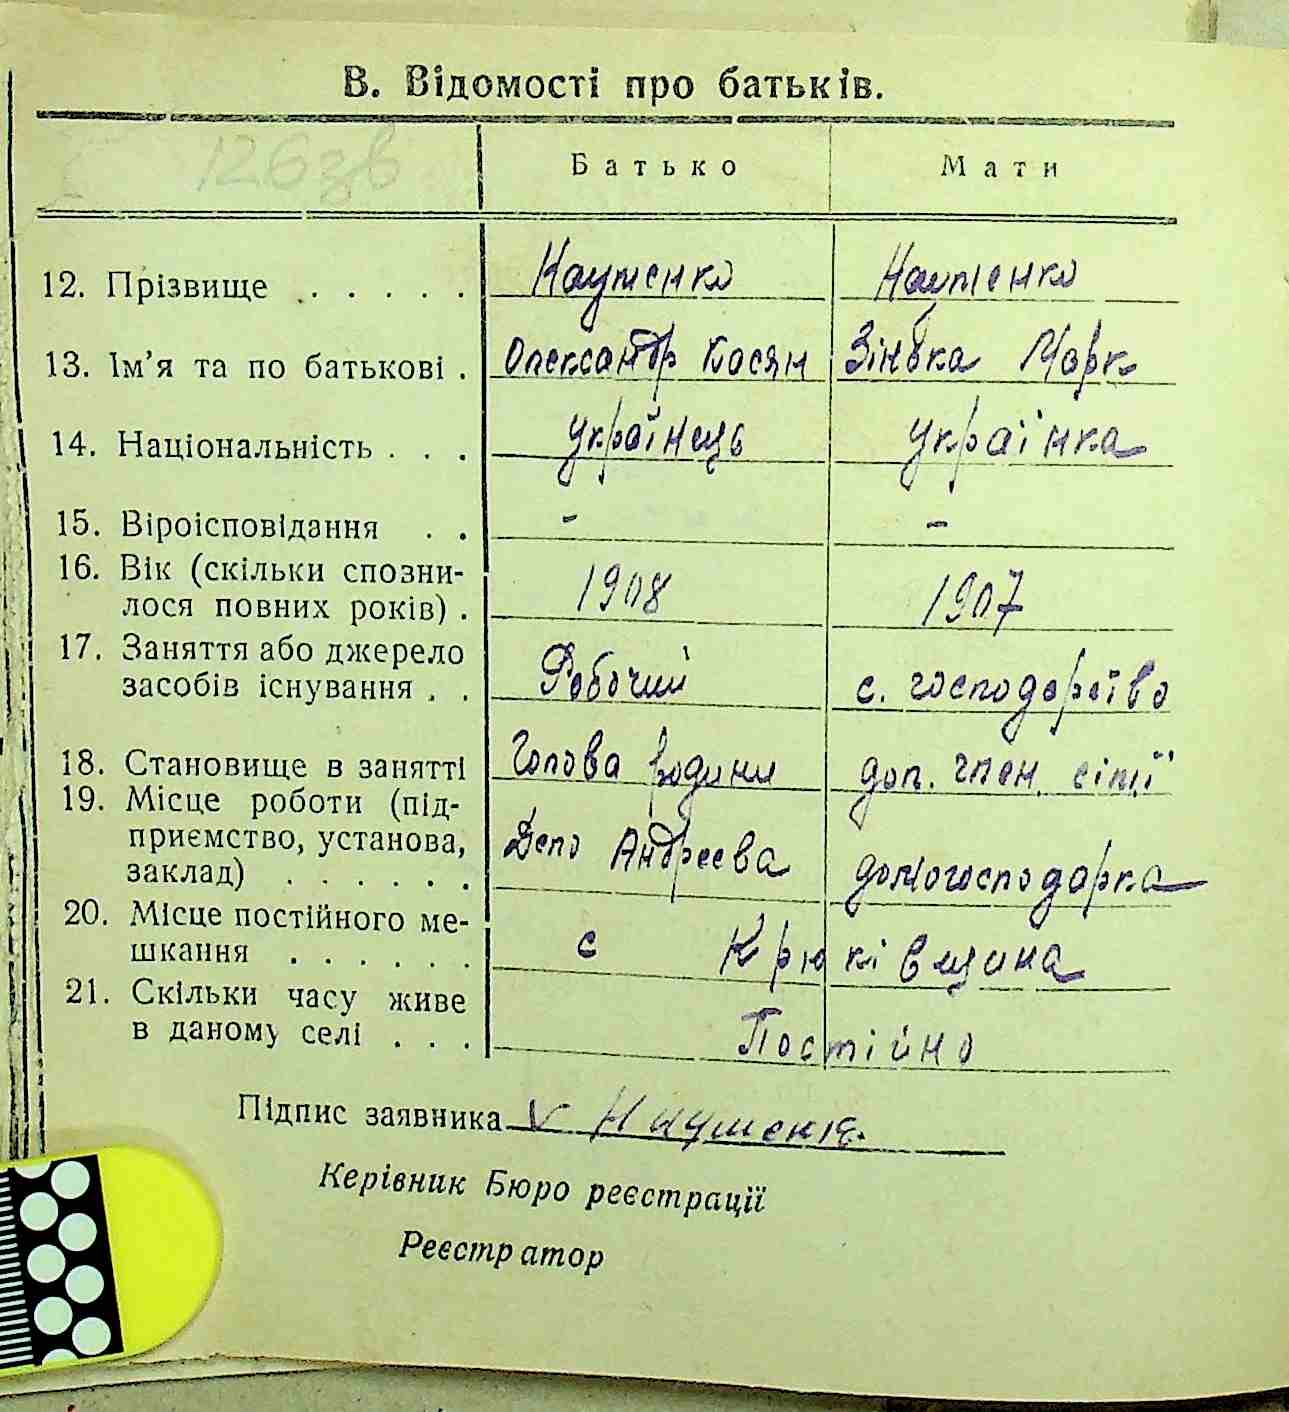 В. Відомості про батьків.
126зв
Батько Мати
12. Прізвище . . . . . Науменко Науменко
13. Ім'я та по батькові . Олександр Касян Зінька Марк
14. Національність . . . українець українка
15. Віроісповідання . . - -
16. Вік (скільки спозни-
лося повних років) . 1908 1907
17. Заняття або джерело
засобів існування . . Робочий с. господарство
18. Становище в занятті Голова родини доп. член сімї
19. Місце роботи (під-
приємство, установа, Депо Андреєва домогосподарка
заклад) . . . . . .
20. Місце постійного ме-
шкання . . . . . . с Крюківщина
21. Скільки часу живе
в даному селі . . . Постійно
Підпис заявника v Науменко
Керівник Бюро реєстрації
Реєстратор